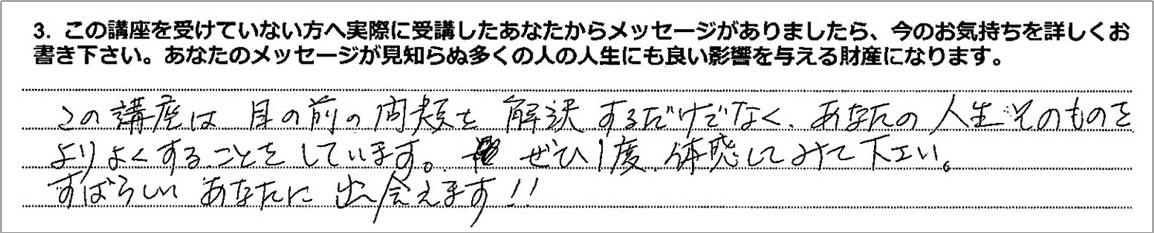 3. この講座を受けていない方へ実際に受講したあなたからメッセージがありましたら、今のお気持ちを詳しくお
書き下さい。あなたのメッセージが見知らぬ多くの人の人生にも良い影響を与える財産になります。
この講座は目の前の問題を解決するだけでなく、あなたの人生そのものを
よりよくすることをしています。ぜひ1度、体感してみて下さい。
すばらしいあなたに出会えます!!